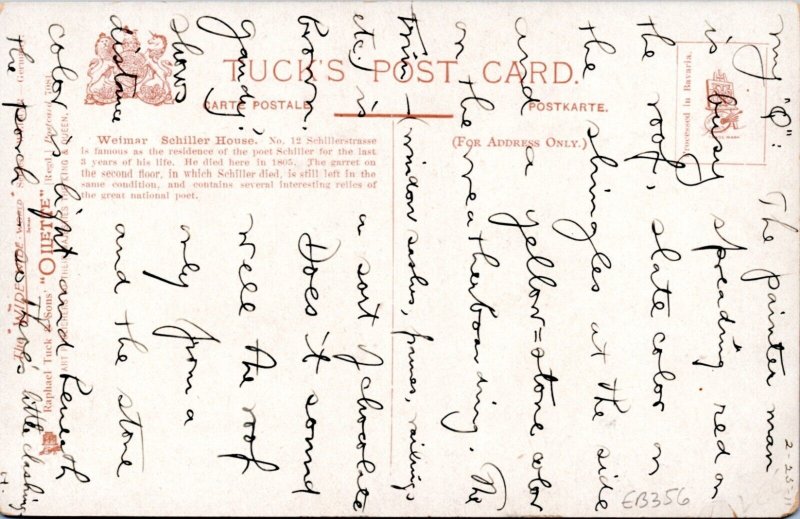 TUCK'S POST CARD.
CARTE POSTALE
POSTKARTE.
(FOR ADDRESS ONLY.)
Processed in Bavaria.
Weimar Schiller House. No. 12 Schillerstrasse
is famous as the residence of the poet Schiller for the last
3 years of his life. He died here in 1805. The garret on
the second floor, in which Schiller died, is still left in the
same condition, and contains several interesting relics of
the great national poet.
Raphael Tuck & Sons' "OILETTE"
2-25-11
my "P": The painter man
is busy spreading red on
the roof, slate color on
the shingles at the side
and a yellow=stone color
on the weatherboarding. The
trim (window sashes, frames, railings
etc) is a sort of chocolate
brown. Does it sound
gaudy? Well the roof
shows only from a
distance and the stone
color is light and beneath
the porch so there's little clashing
H.
EB356